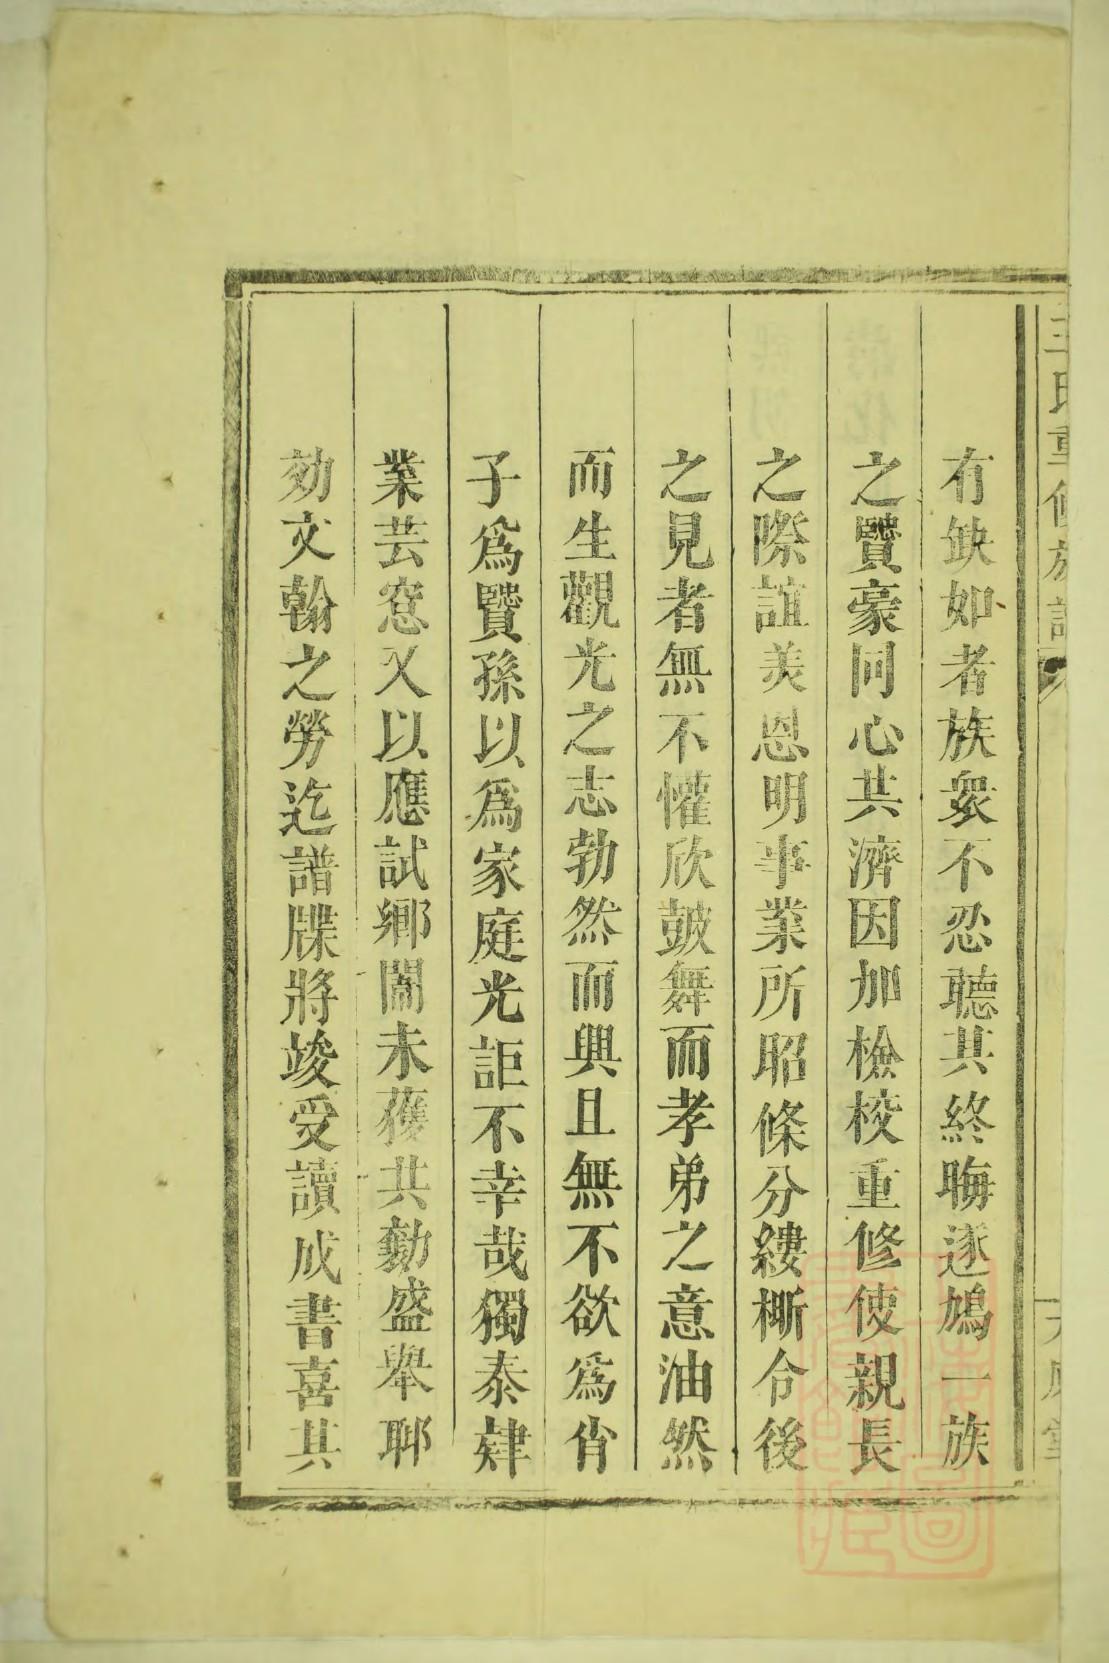 王氏重修族譜
有缺如者族衆不忍聽其終晦遂鳩一族
之賢豪同心共濟因加檢校重修使親長
之際誼美恩明事業所昭條分縷晰令後
之見者無不懽欣鼓舞而孝弟之意油然
而生觀光之志勃然而興且無不欲爲肖
子爲賢孫以爲家庭光詎不幸哉獨泰肄
業芸窓又以應試鄉闈未獲共勷盛舉聊
効文翰之勞迄譜牒將竣受讀成書喜其